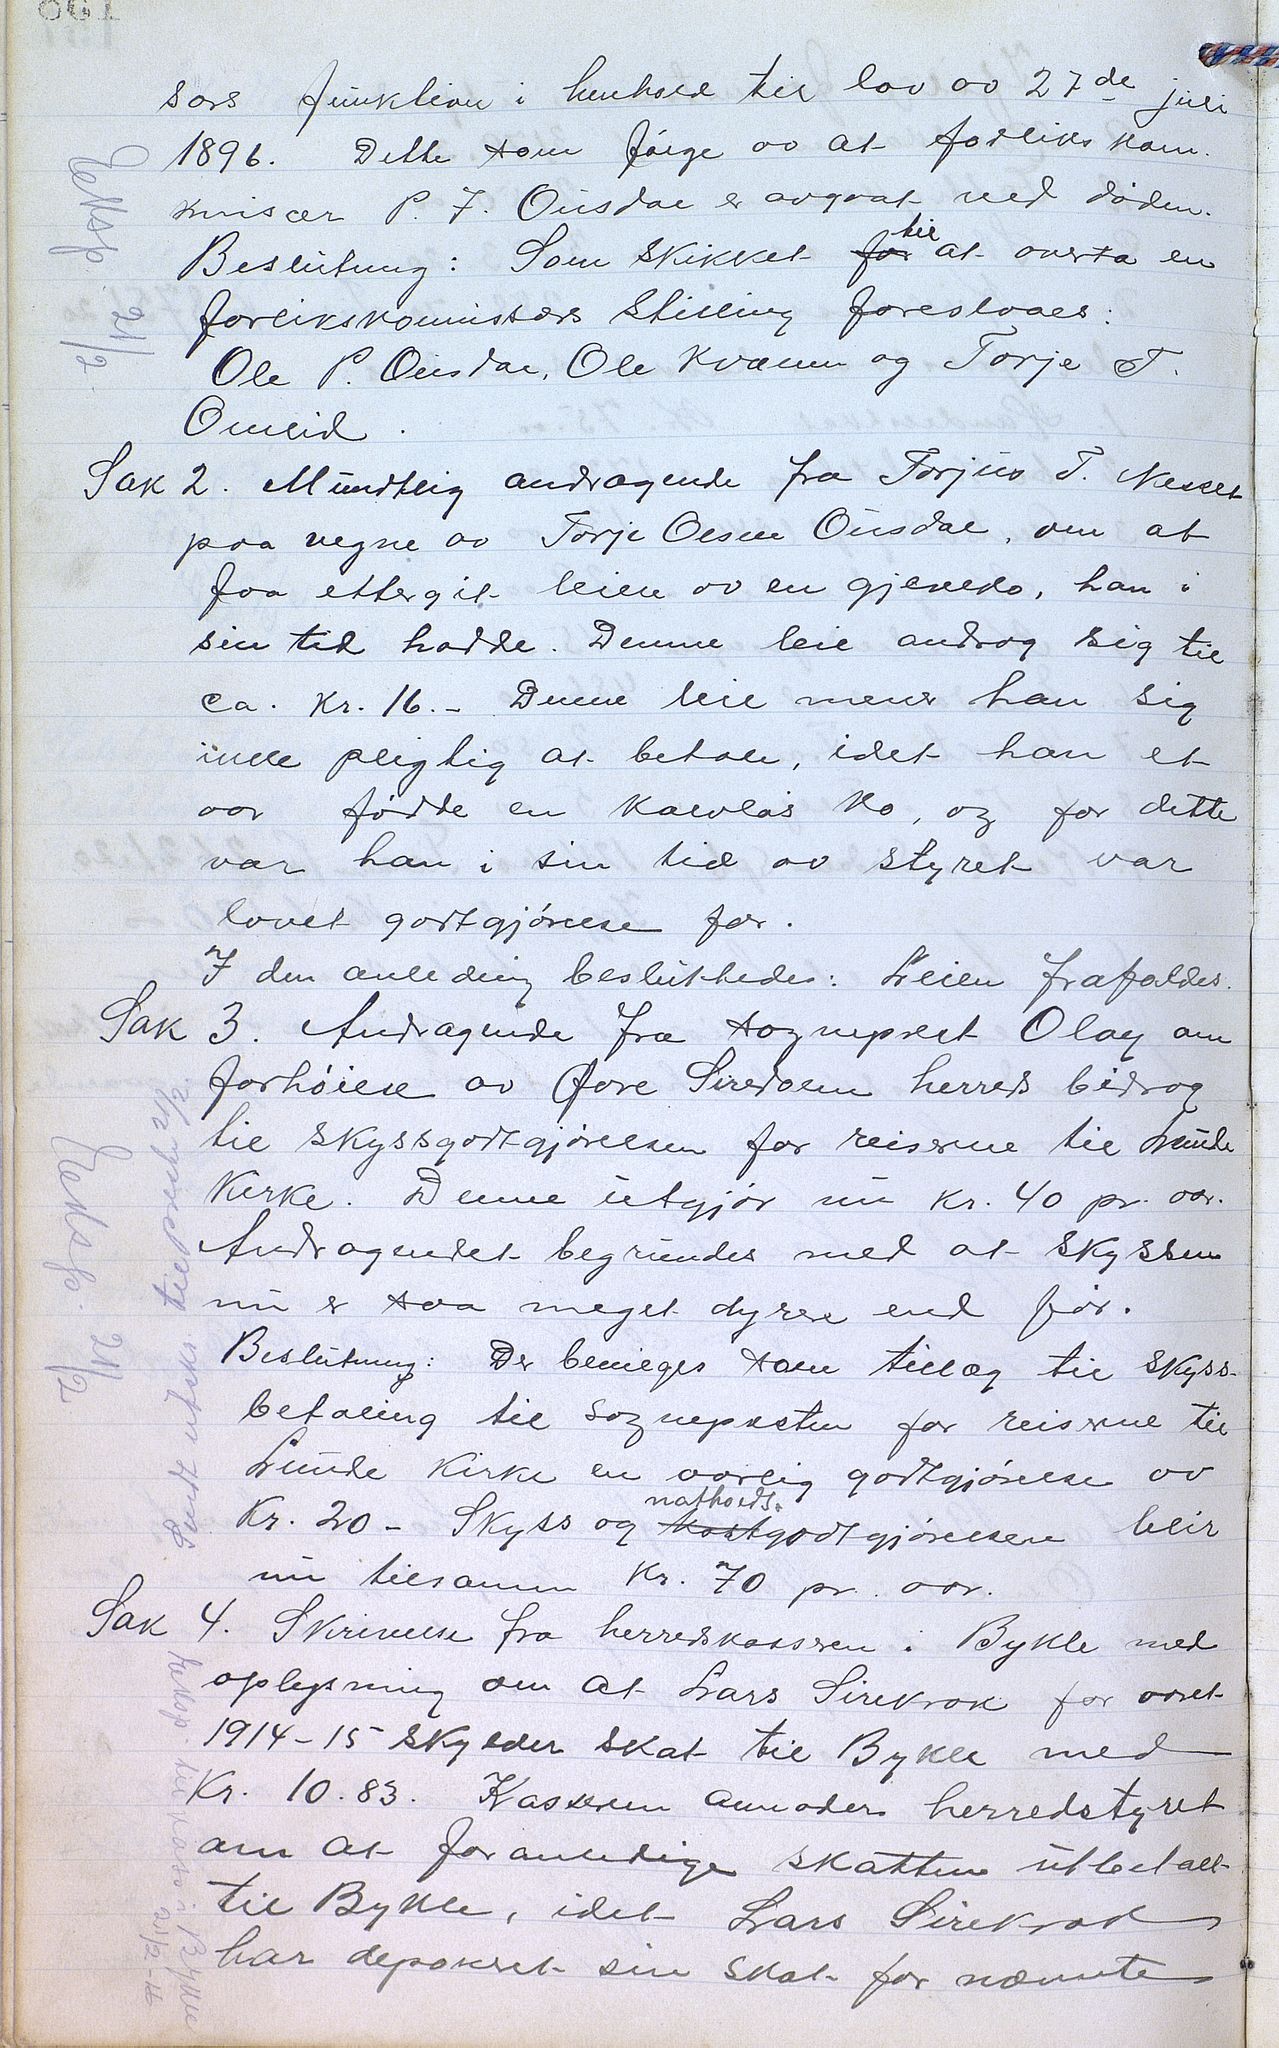 sørs funktion i henhold til lov av 27de juli
1896. Dette som følge av at forlikskom-
missær P. T. Ousdal er avgaat ved døden.
Beslutning: Som skikket for til at overta en
forlikskomissærs stilling foreslaaes:
Ole P. Ousdal, Ole Kvæven og Torje T.
Omlid.
Sak 2. Mundtlig andragende fra Torjus T. Nesset
paa vegne av Torje Olsen Ousdal, om at
faa ettergit leien av en gjeldko, han i
sin tid hadde. Denne leie androg sig til
ca. kr. 16.- Denne leie mener han sig
ikke pligtig at betale, idet han et
aar fødde en kalvlås ko, og for dette
var han i sin tid av styret var
lovet godtgjørelse for.
I den anledning besluttedes: Leien frafaldes.
Sak 3. Andragende fra sogneprest Olay om
forhøielse av Øvre Siredalen herreds bidrag
til skyssgodtgjørelsen for reiserne til Lunde
Kirke. Denne utgjør nu kr. 40 pr. aar.
Andragendet begrundes med at skyssen
nu er saa meget dyrere end før.
Beslutning: Der bevilges som tillæg til skyss-
betaling til sognepresten for reiserne til
Lunde Kirke en aarlig godtgjørelse av
Kr. 20 - Skyss og kost natholds. godtgjørelsen blir
nu tilsammen kr. 70 pr. aar.
Sak 4. Skrivelse fra herredskasseren i Bykle med
oplysning om at Lars Sirekrok for aaret
1914-15 skylder skat til Bykle med
Kr. 10.83. Kasseren anmoder herredstyret
om at foranledige skatten utbetalt
til Bykle, idet Lars Sirekrok
har deponeret sin skat for nævnte
Eeksp. 21/2.
Eeksp. 21/2
Sendt utskr. til presten 2/12
Eeksp. til kasser i Bykle
21/2-16